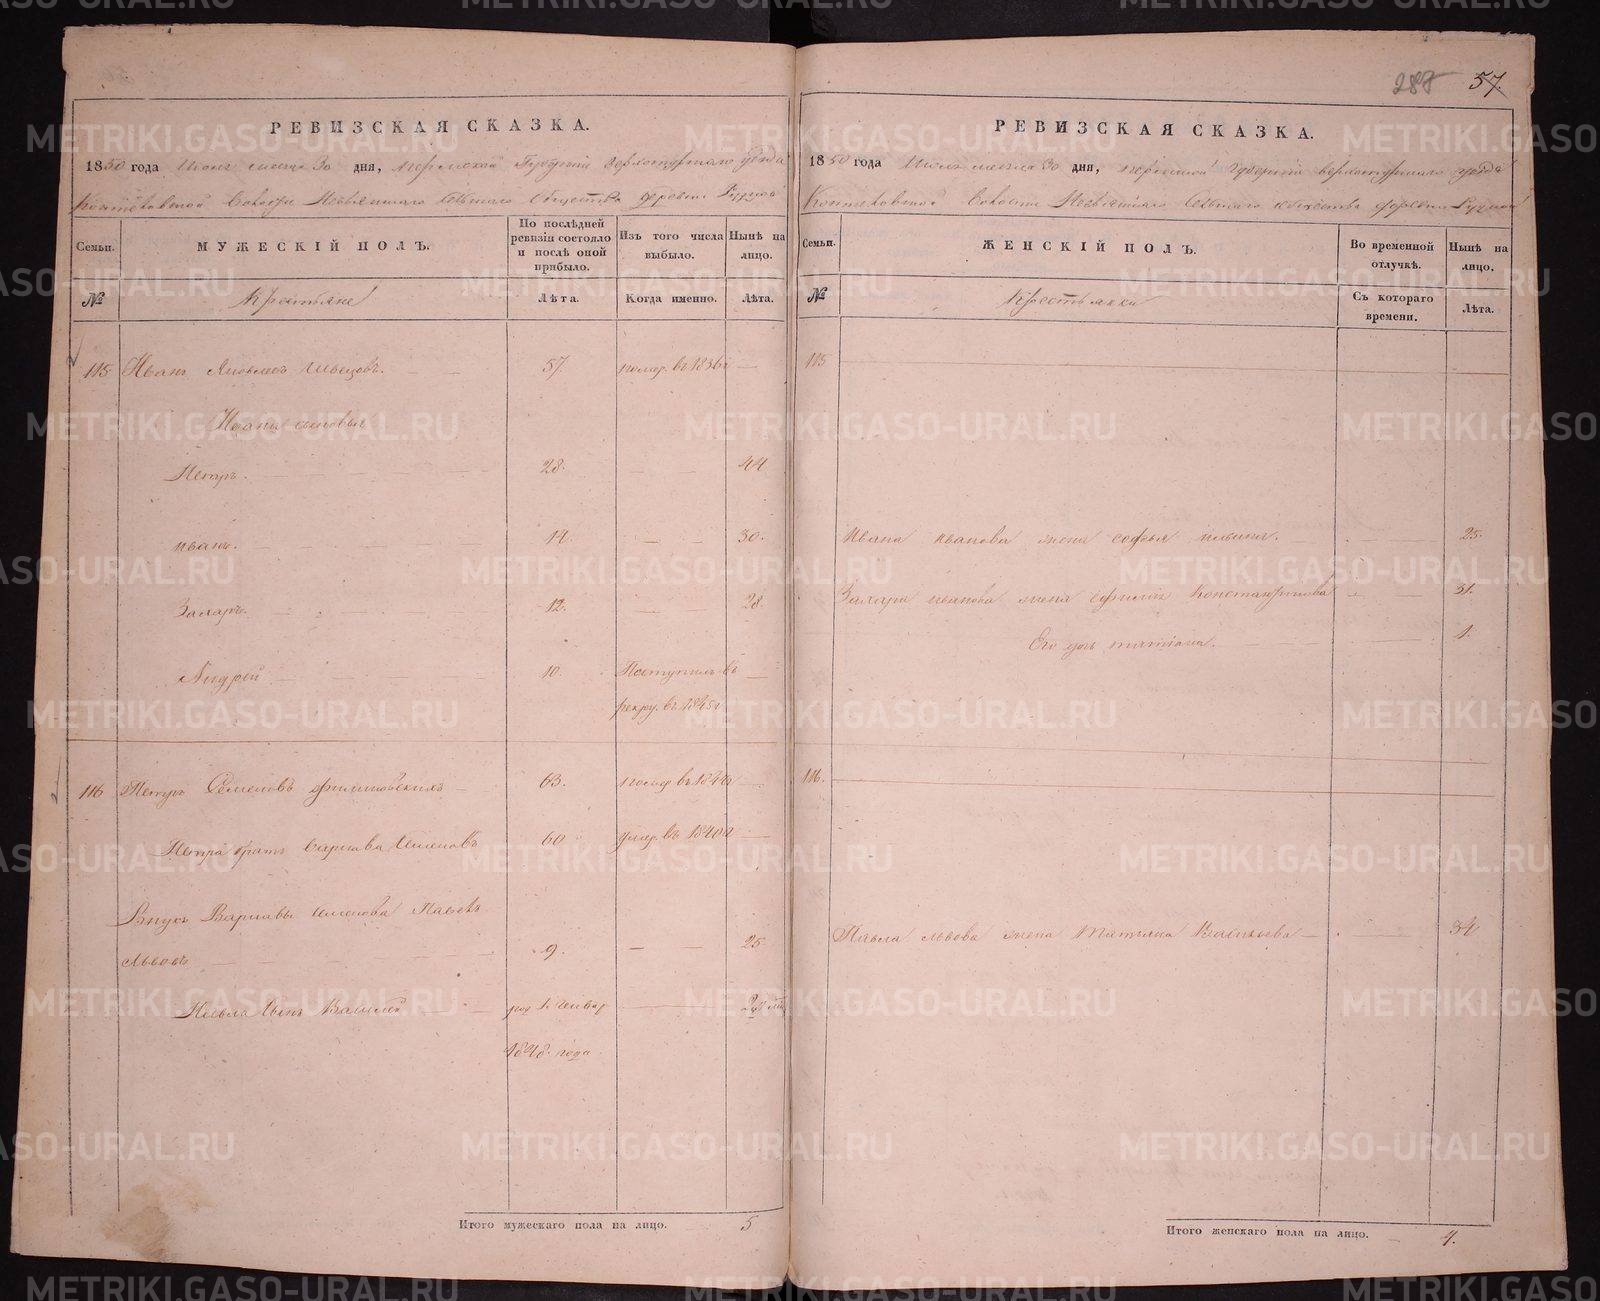 288 57.
РЕВИЗСКАЯ СКАЗКА.
1850 года Июля месяца 30 дня, Пермской Губернии Верхотурскаго уезда
Коптяковской Волости Сельскаго Общества деревни
Семьи. МУЖЕСКІЙ ПОЛЪ. По послѣдней ревизіи состояло и послѣ оной прибыло. Изъ того числа выбыло. Нынѣ на лицо.
№ Крестьяне Лѣта. Когда именно. Лѣта.
115 Иванъ Яковлевъ Швецовъ. 57. помер. въ 1836 г
Ивана сыновья
Петръ. 28. 44
Иванъ. 14. 30.
Захаръ. 12. 28.
Андрей 10. Поступилъ въ
рекру. въ 1845 г
116 Петръ Семеновъ 63. въ 1840
Петра братъ Семеновъ 60 умер. въ 1840
Внукъ Варнавы Семенова Павелъ
Львовъ 9. 25
Павла сынъ Василей род 1. Генвар
1848. года
Итого мужескаго пола на лицо. 5
РЕВИЗСКАЯ СКАЗКА.
1850 года Июля месяца 30 дня, Пермской Губернии Верхотурскаго уезда
Коптяковской Волости Сельскаго общества деревни
Семьи. ЖЕНСКІЙ ПОЛЪ. Во временной отлучкѣ. Нынѣ на лицо.
№ Крестьянки Съ котораго времени. Лѣта.
115
Ивана Иванова жена Софья 25.
Захара Иванова жена Константинова 31.
Его дочь Татіана. 1.
116.
Павла Львова жена Татьяна Васильева 34
Итого женскаго пола на лицо. 4.
METRIKI.GASO-URAL.RU